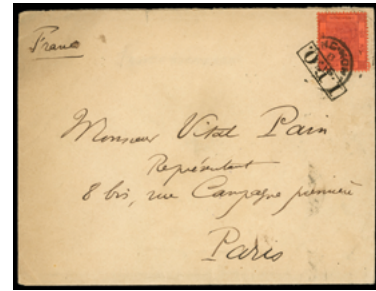 France
I.P.O.
Monsieur Vital Pain
Représentant
8 bis, rue Campagne première
Paris